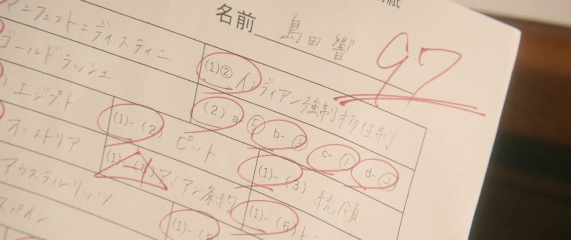 名前 島田 響
97
マニフェスト=ディスティニー
ゴールドラッシュ
(1)② インディアン強制移住制
エジプト
(1)-(2) ピット
(2) a b- c- d-
オーストリア
アミアン条約
(1)-(3) 統領
アウステルリッツ
(1)-(6)
スペイン